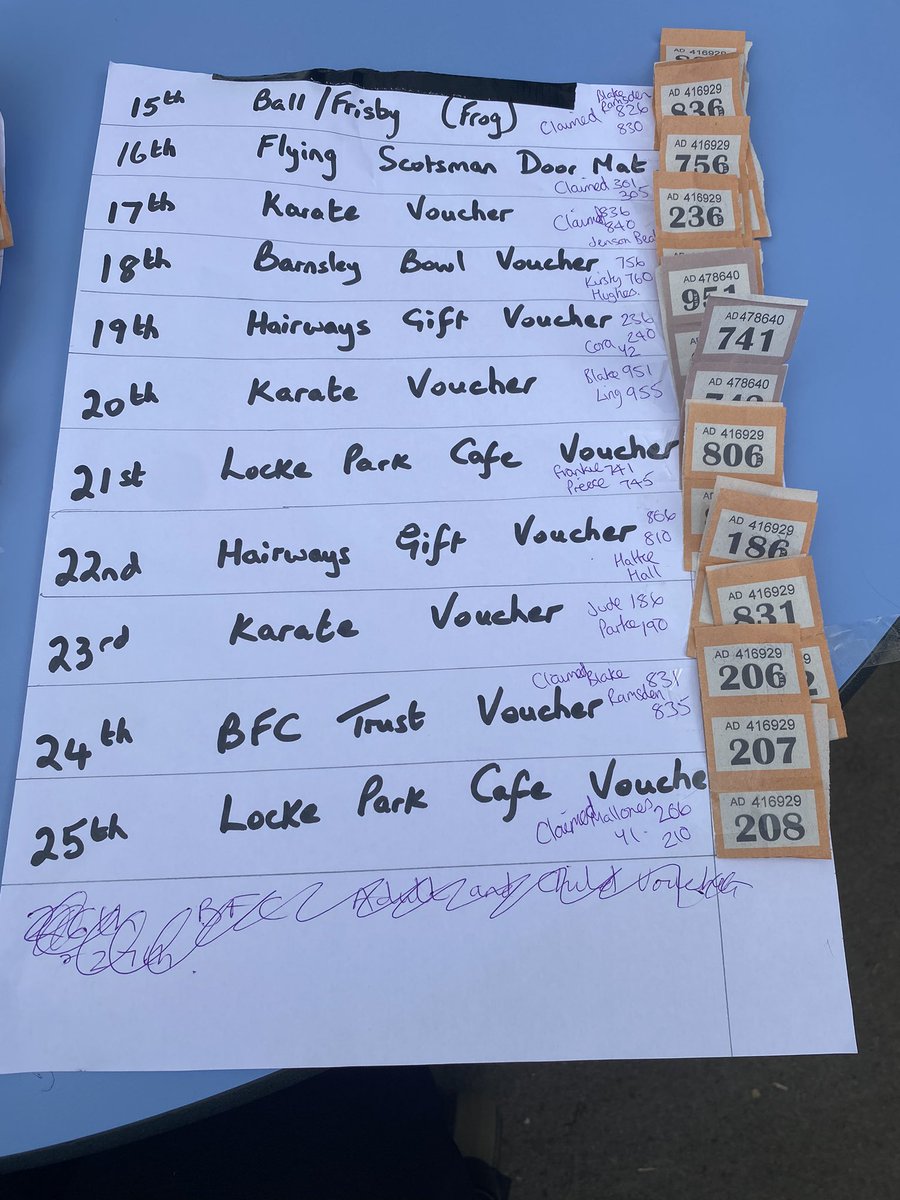 15th Ball/Frisby (Frog) Claimed Blake Ramsden 826 830
16th Flying Scotsman Door Mat Claimed 301 305
17th Karate Voucher Claimed 836 840 Jenson
18th Barnsley Bowl Voucher 756 Kirsty 760 Hughes.
19th Hairways Gift Voucher 236 Cora 240 Y2
20th Karate Voucher Blake 951 Ling 955
21st Locke Park Cafe Voucher Frankie 741 Preece 745
22nd Hairways Gift Voucher 806 810 Hall
23rd Karate Voucher Jude 186 190
24th BFC Trust Voucher Claimed Blake 831 Ramsden 835
25th Locke Park Cafe Vouche Claimed Mallones 206 Y1. 210
AD 416929
AD 416929
836
AD 416929
756
AD 416929
236
AD 478640
951
AD 478640
741
AD 478640
AD 416929
806
AD 416929
186
AD 416929
831
AD 416929
206
AD 416929
207
AD 416929
208